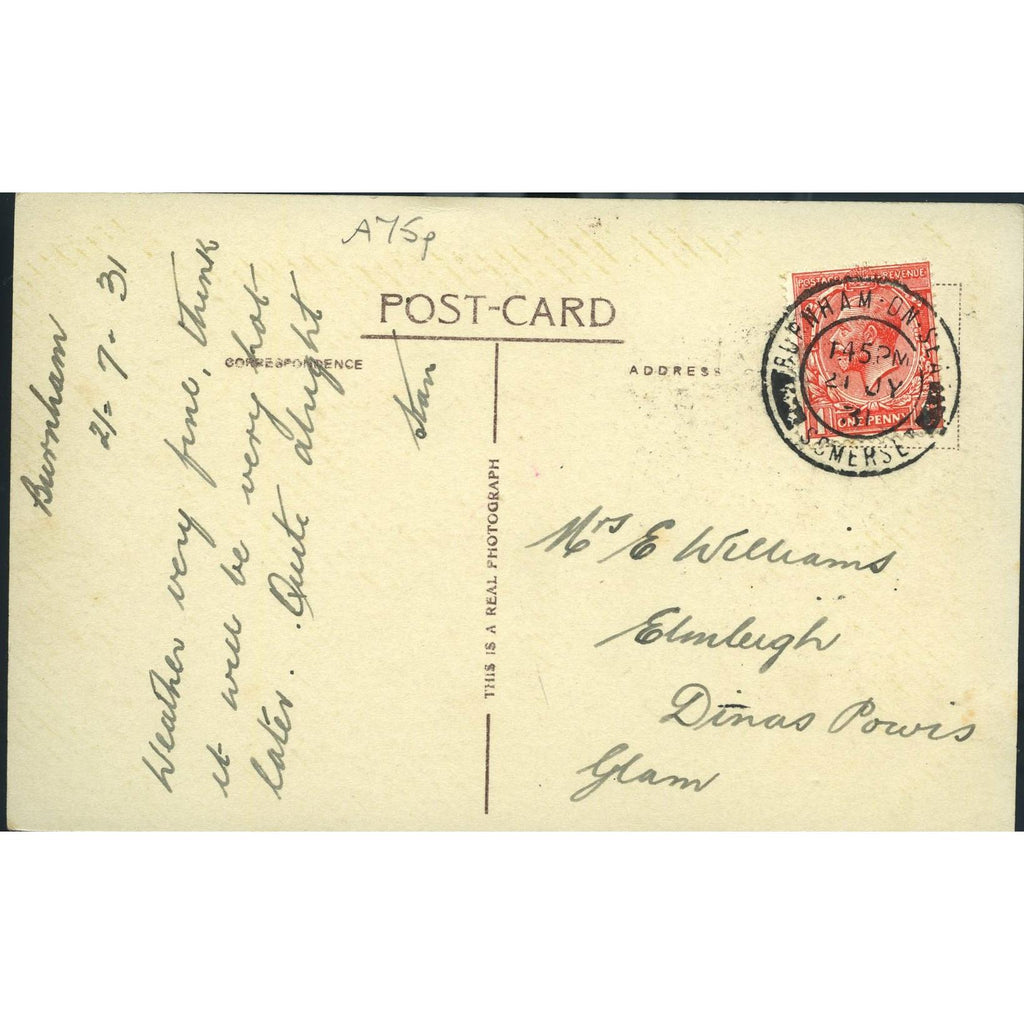 A75p
POST-CARD
CORRESPONDENCE
ADDRESS
THIS IS A REAL PHOTOGRAPH
Burnham
21-7-31
Weather very fine, think
it will be very hot
later. Quite alright
Stan
POSTAGE REVENUE
ONE PENNY
BURNHAM-ON-SEA
145PM
21 JY
31
SOMERSET
Mrs E Williams
Elmleigh
Dinas Powis
Glam